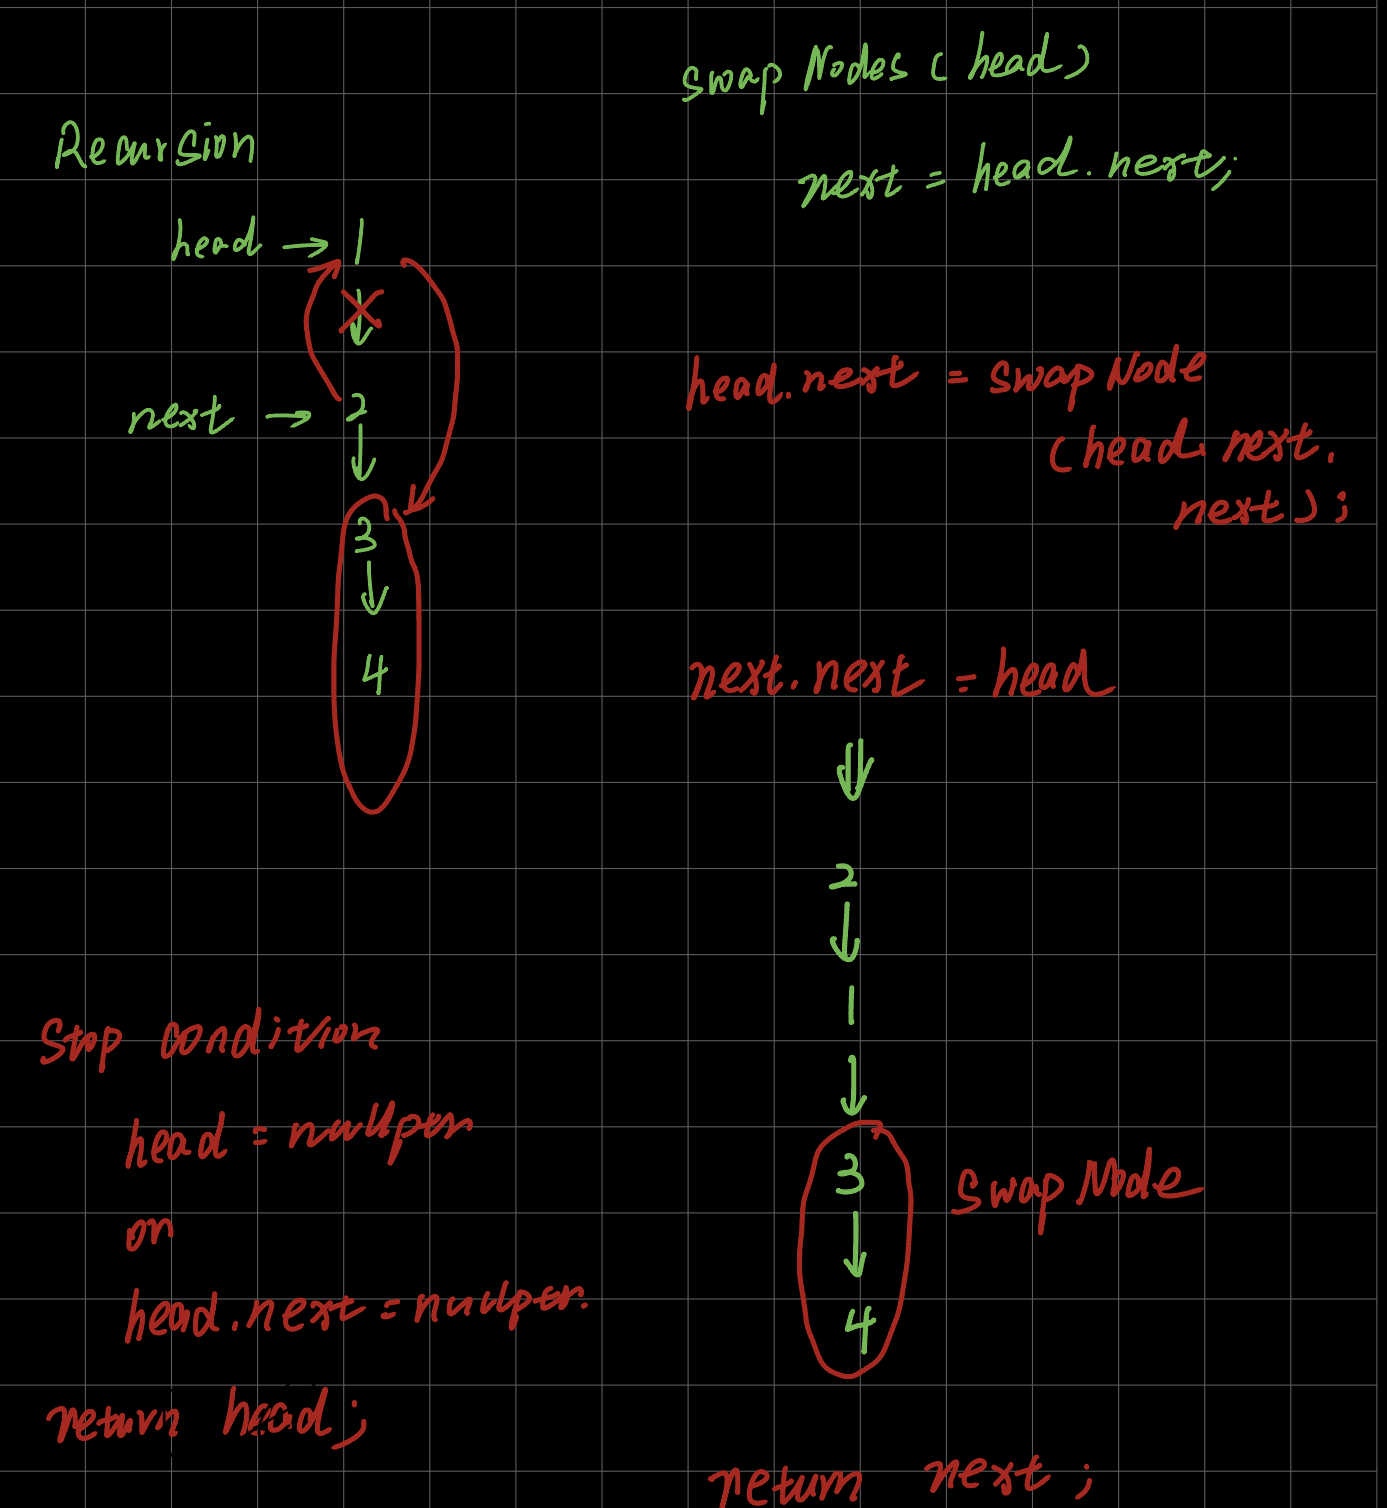 Recursion
head → 1
next → 2
3
4
Stop condition
head = nullptr
or
head.next = nullptr.
return head;
swap Nodes (head)
next = head.next;
head.next = swap Node
(head.next.
next);
next.next = head
2
1
3
swap Node
4
return next;